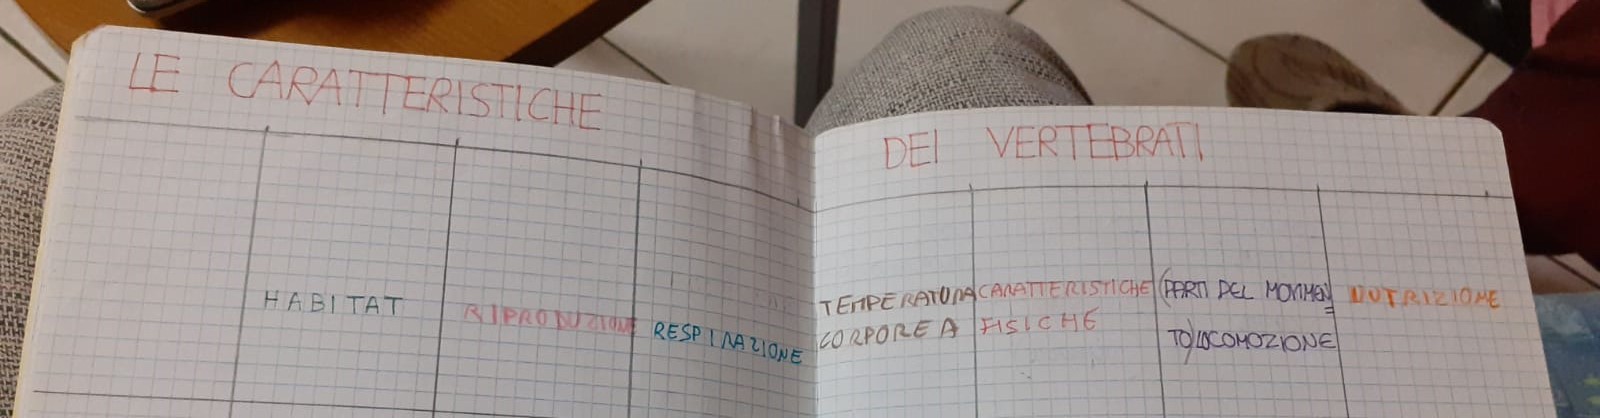 LE CARATTERISTICHE DEI VERTEBRATI
HABITAT
RIPRODUZIONE
RESPIRAZIONE
TEMPERATURA
CORPOREA
CARATTERISTICHE
FISICHE
(PARTI DEL MOVIMEN
TO)LOCOMOZIONE
NUTRIZIONE